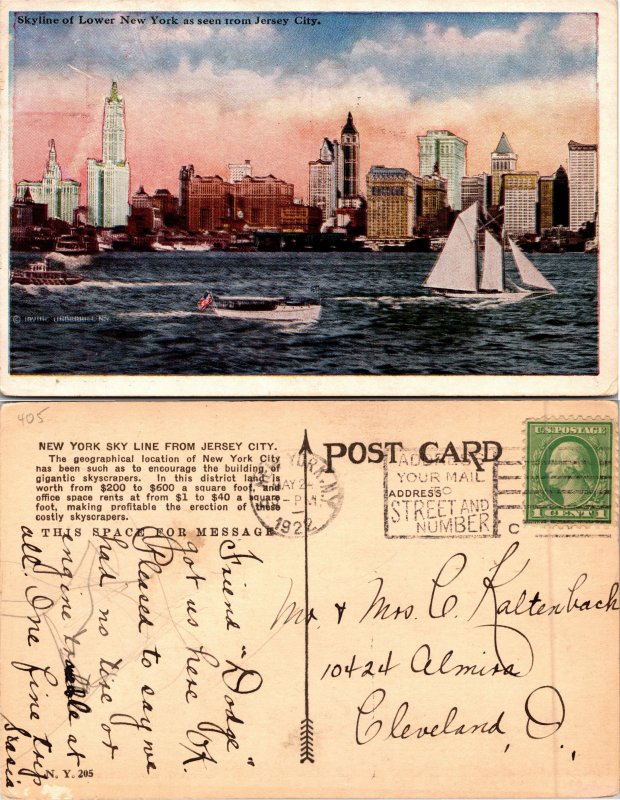 Skyline of Lower New York as seen from Jersey City.
© IRVING UNDERHILL, N.Y.
405
NEW YORK SKY LINE FROM JERSEY CITY.
The geographical location of New York City
has been such as to encourage the building of
gigantic skyscrapers. In this district land is
worth from $200 to $600 a square foot, and
office space rents at from $1 to $40 a square
foot, making profitable the erection of these
costly skyscrapers.
THIS SPACE FOR MESSAGE
Friend "Dodge"
got us here OK.
Pleased to say we
had no tire or
engine trouble at
all. One fine trip
N. Y. 205
POST CARD
YORK, N.Y.
MAY 2
P.M.
1922
ADDRESS
YOUR MAIL
TO
STREET AND
NUMBER
C
U.S. POSTAGE
1 CENT 1
Mr. & Mrs. C. Kaltenbach
10424 Almira
Cleveland, O.